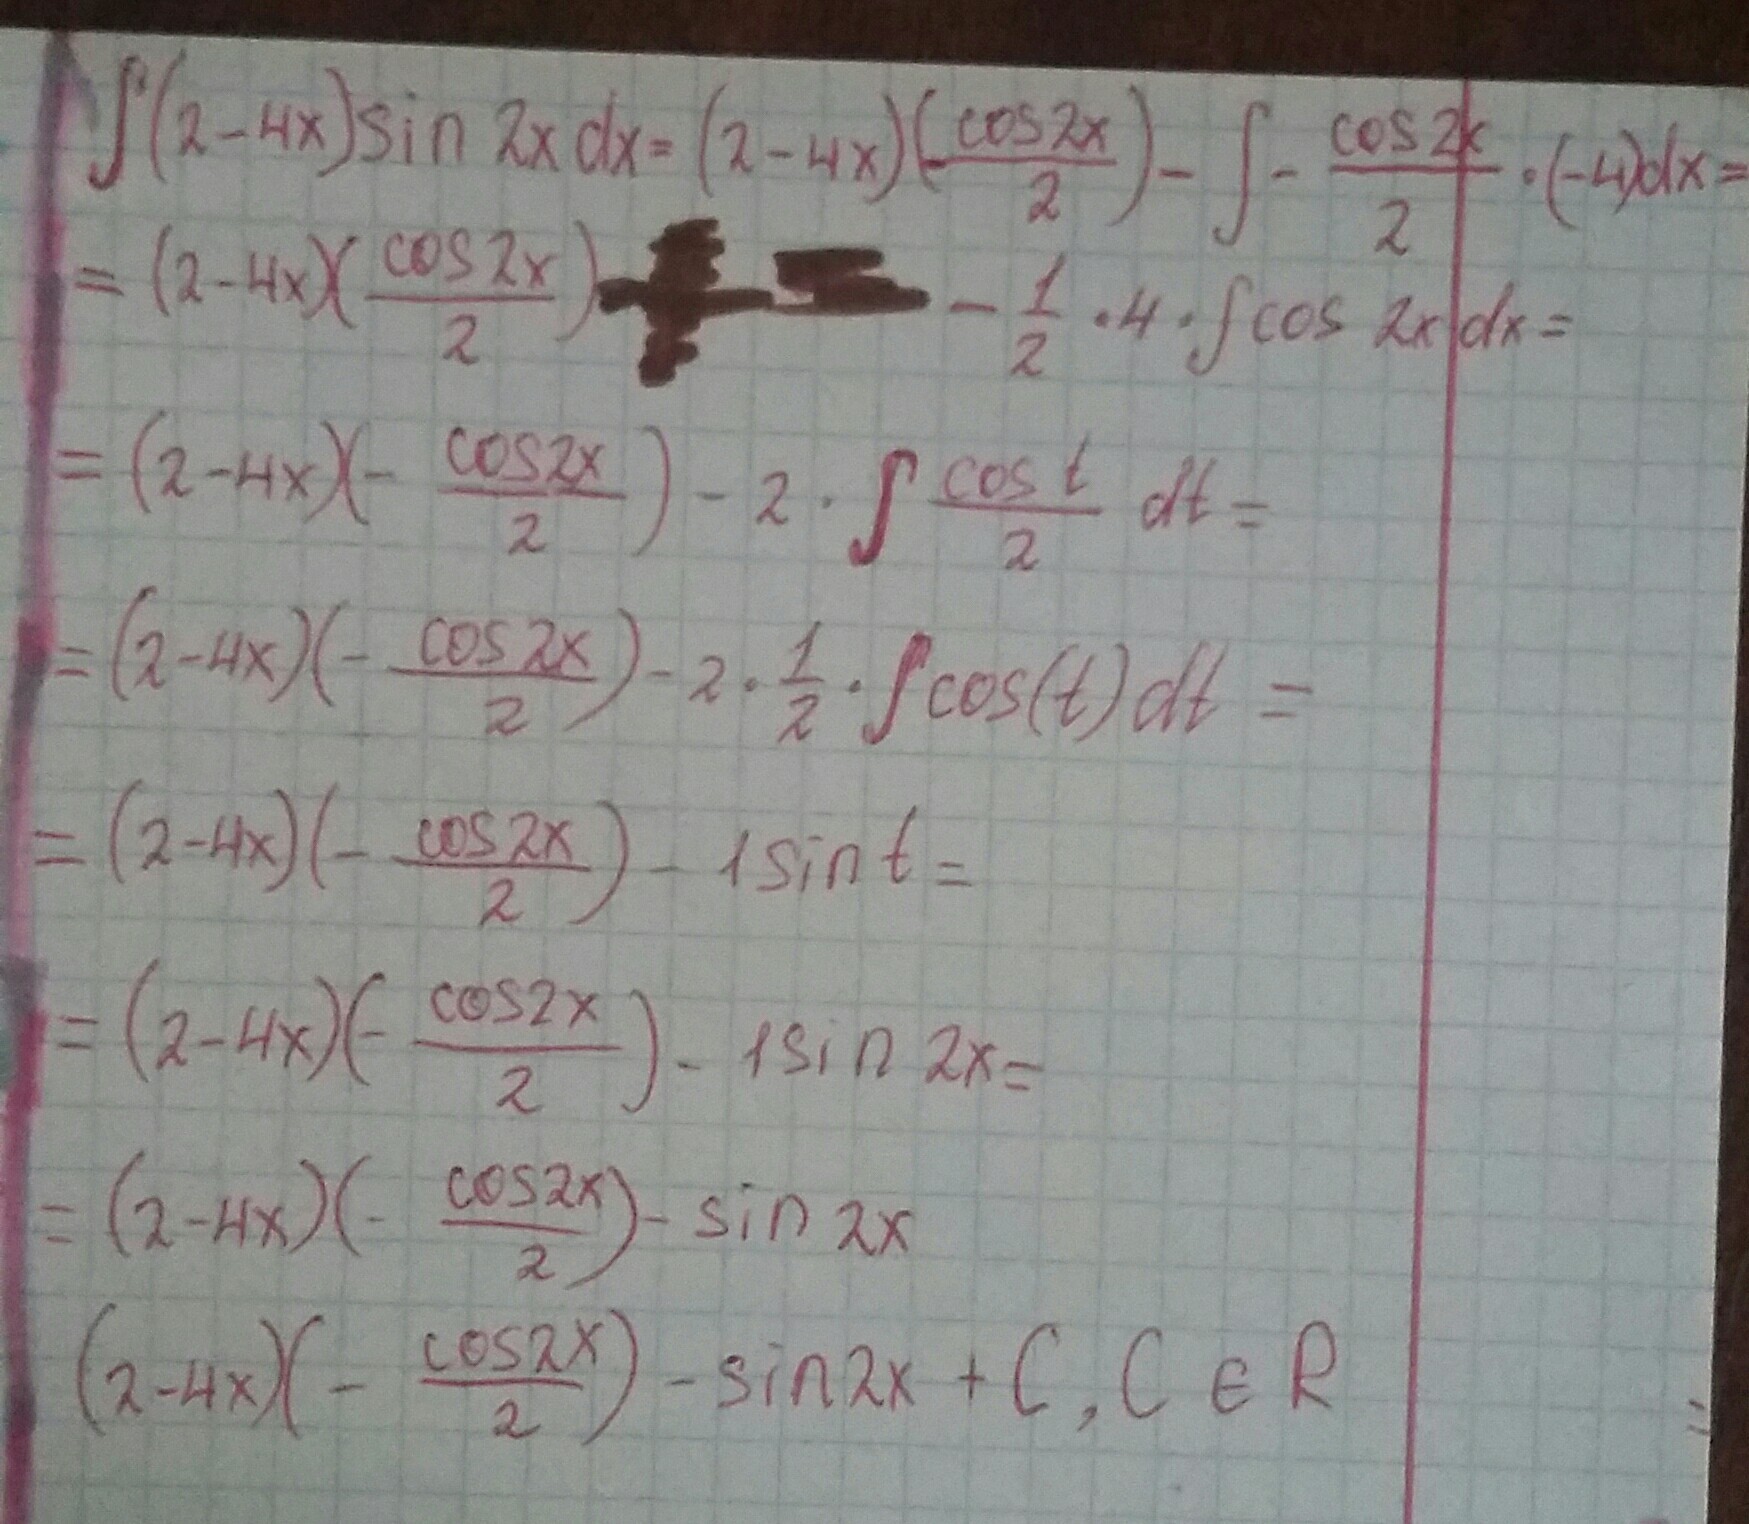 ∫(2-4x)sin 2x dx = (2-4x)(-cos2x/2) - ∫ - cos2x/2 · (-4)dx =
= (2-4x)(cos2x/2) - 1/2 · 4 · ∫cos 2x dx =
= (2-4x)(- cos2x/2) - 2 · ∫ cos t/2 dt =
= (2-4x)(- cos2x/2) - 2 · 1/2 · ∫cos(t) dt =
= (2-4x)(- cos2x/2) - 1 sin t =
= (2-4x)(- cos2x/2) - 1 sin 2x =
= (2-4x)(- cos2x/2) - sin 2x
(2-4x)(- cos2x/2) - sin2x + C, C ∈ R
=